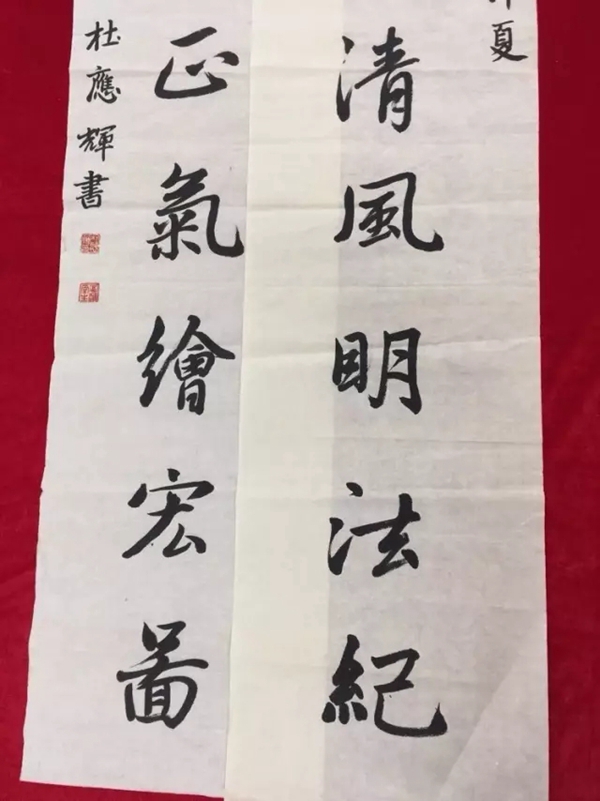 夏
清風明法紀
正氣繪宏圖
杜應輝書